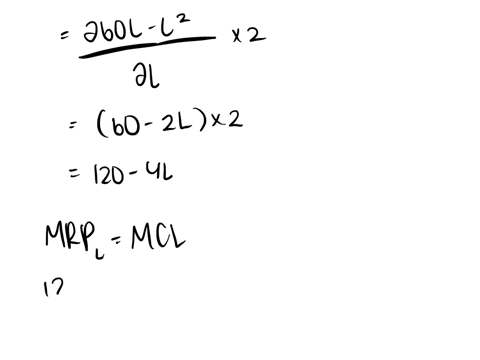 = ∂60L - L² × 2
∂L
= (60 - 2L) × 2
= 120 - 4L
MRP_L = MCL
12